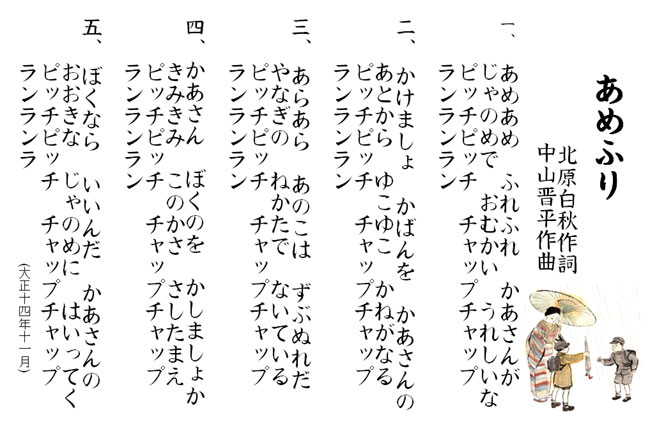 あめふり
北原白秋作詞
中山晋平作曲
一、
あめあめ ふれふれ かあさんが
じゃのめで おむかい うれしいな
ピッチピッチ チャップチャップ
ランランラン
二、
かけましょ かばんを かあさんの
あとから ゆこゆこ かねがなる
ピッチピッチ チャップチャップ
ランランラン
三、
あらあら あのこは ずぶぬれだ
やなぎの ねかたで ないている
ピッチピッチ チャップチャップ
ランランラン
四、
かあさん ぼくのを かしましょか
きみきみ このかさ さしたまえ
ピッチピッチ チャップチャップ
ランランラン
五、
ぼくなら いいんだ かあさんの
おおきな じゃのめに はいってく
ピッチピッチ チャップチャップ
ランランラン
(大正十四年十一月)